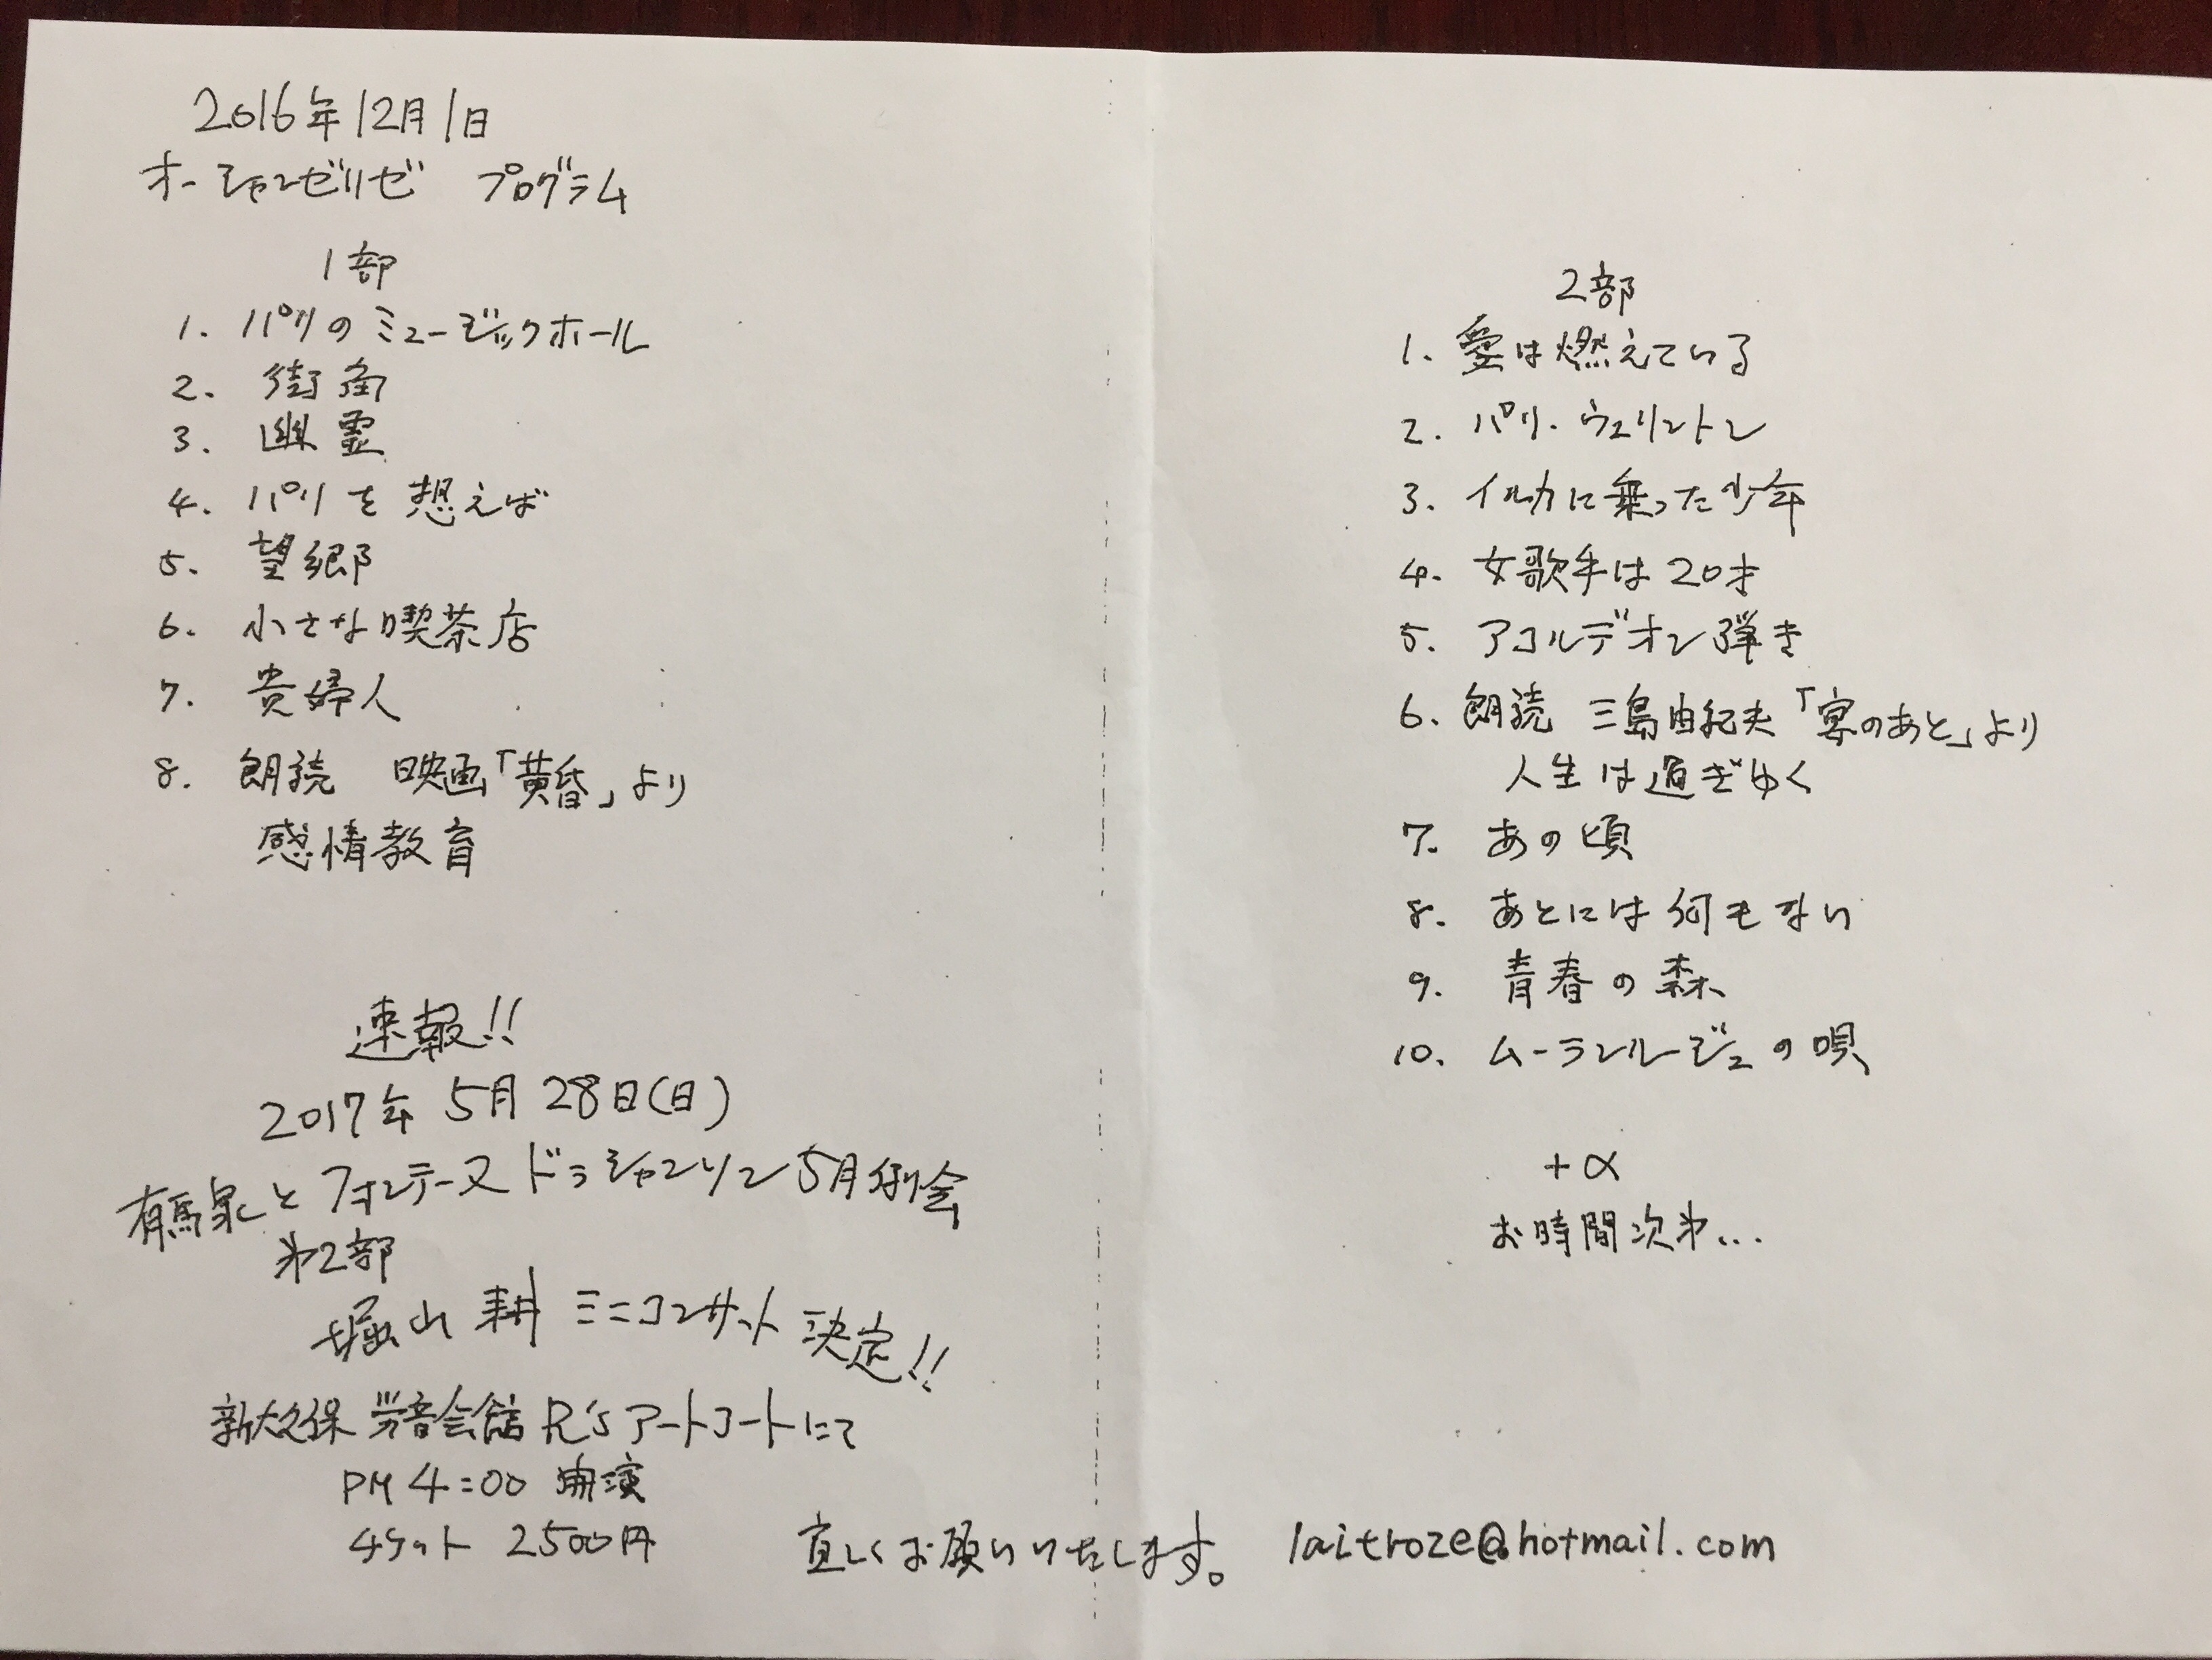 2016年12月1日
オーシャンゼリゼ プログラム
1部
1. パリのミュージックホール
2. 街角
3. 幽霊
4. パリを想えば
5. 望郷
6. 小さな喫茶店
7. 貴婦人
8. 朗読 映画「黄昏」より
感情教育
速報!!
2017年5月28日(日)
有馬泉とフォンテーヌ ドゥ シャンソン5月例会
第2部
堀山 耕 ミニコンサート 決定!!
新大久保 労音会館 R'sアートコートにて
PM 4:00 開演
チケット 2500円
宜しくお願いいたします。 laitroze@hotmail.com
2部
1. 愛は燃えている
2. パリ・ウェリントン
3. イルカに乗った少年
4. 女歌手は20才
5. アコルデオン弾き
6. 朗読 三島由紀夫「宴のあと」より
人生は過ぎゆく
7. あの頃
8. あとには何もない
9. 青春の森
10. ムーランルージュの唄
+α
お時間次第...